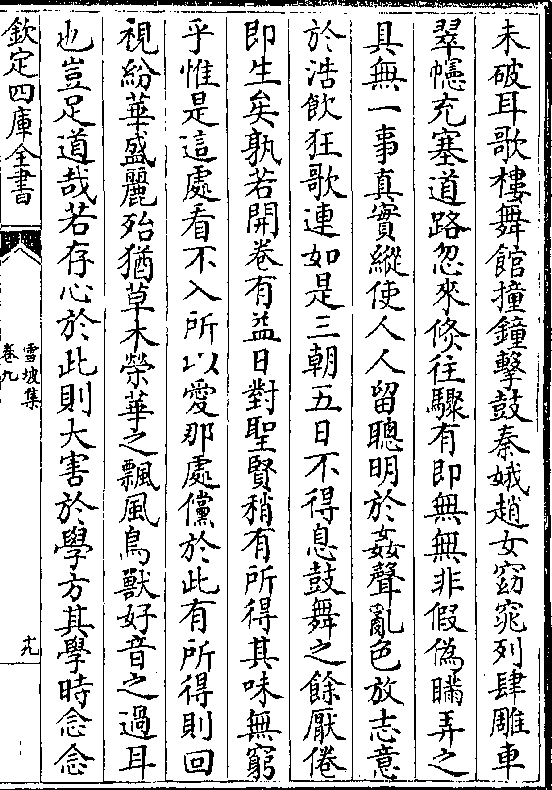 未破耳歌樓舞館撞鐘擊鼓秦娥趙女窈窕列肆雕車
翠幰充塞道路忽來倏往驟有即無無非假偽瞞弄之
具無一事真實縱使人人留聰明於姦聲亂色放志意
於浩飲狂歌連如是三朝五日不得息鼓舞之餘厭倦
即生矣孰若開卷有益日對聖賢稍有所得其味無窮
乎惟是這處看不入所以愛那處儻於此有所得則回
視紛華盛麗殆猶草木榮華之飄風鳥獸好音之過耳
也豈足道哉若存心於此則大害於學方其學時念念
欽定四庫全書
雪坡集
卷九
十九